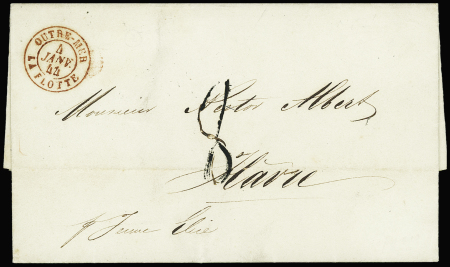 OUTRE-MER
4
JANV.
44
LA FLOTTE
Monsieur Victor Albert
8
Hâvre
p Jeune Elie